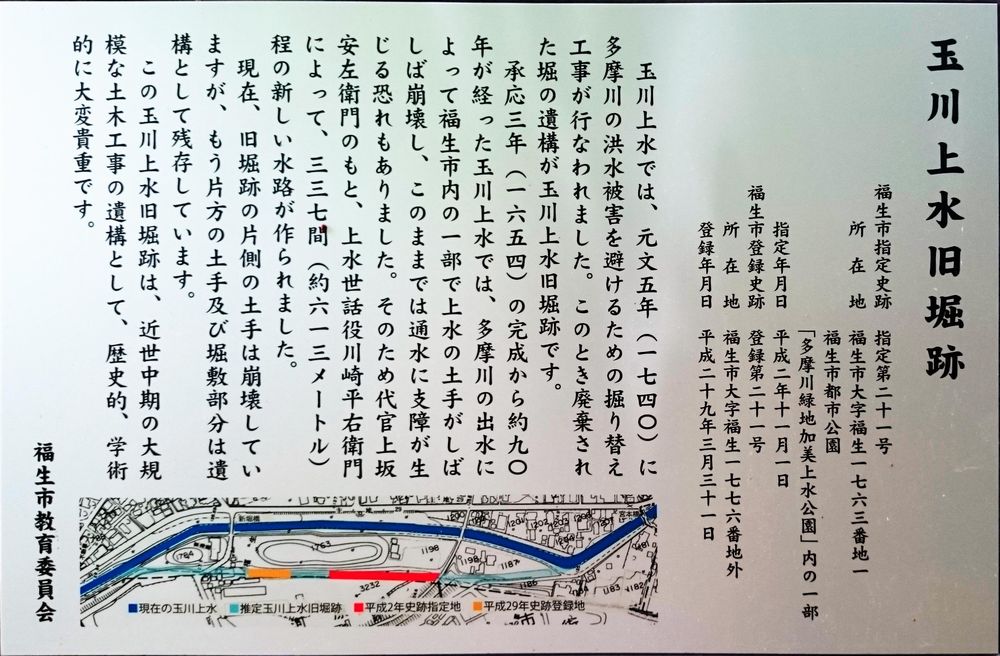 玉川上水旧堀跡
福生市指定史跡　指定第二十一号
所在地　福生市大字福生一七六三番地一
福生市都市公園
「多摩川緑地加美上水公園」内の一部
指定年月日　平成二年十一月一日
福生市登録史跡　登録第二十一号
所在地　福生市大字福生一七七六番地外
登録年月日　平成二十九年三月三十一日
玉川上水では、元文五年（一七四〇）に
多摩川の洪水被害を避けるための掘り替え
工事が行なわれました。このとき廃棄され
た堀の遺構が玉川上水旧堀跡です。
承応三年（一六五四）の完成から約九〇
年が経った玉川上水では、多摩川の出水に
よって福生市内の一部で上水の土手がしば
しば崩壊し、このままでは通水に支障が生
じる恐れもありました。そのため代官上坂
安左衛門のもと、上水世話役川崎平右衛門
によって、三三七間（約六一三メートル）
程の新しい水路が作られました。
現在、旧堀跡の片側の土手は崩壊してい
ますが、もう片方の土手及び堀敷部分は遺
構として残存しています。
この玉川上水旧堀跡は、近世中期の大規
模な土木工事の遺構として、歴史的、学術
的に大変貴重です。
福生市教育委員会
新堀橋
宮本橋
1200
1201
1202
1203
764
1763
1198
1198
1187
1186
1183
1182
3232
現在の玉川上水
推定玉川上水旧堀跡
平成2年史跡指定地
平成29年史跡登録地